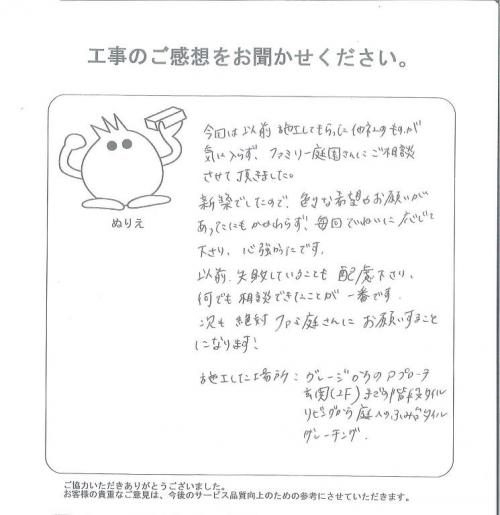 工事のご感想をお聞かせください。
ぬりえ
今回は以前施工してもらった他社のものが
気に入らず、ファミリー庭園さんにご相談
させて頂きました。
新築でしたので、色々な希望やお願いが
あったにもかかわらず、毎回ていねいに応じて
下さり、心強かったです。
以前、失敗していることも配慮下さり、
何でも相談できたことが一番です。
次も絶対ファミ庭さんにお願いすること
になります!
施工した場所：ガレージからのアプローチ
玄関(2F)までの階段タイル
リビングから庭へのふみ台タイル
グレーチング.
ご協力いただきありがとうございました。
お客様の貴重なご意見は、今後のサービス品質向上のための参考にさせていただきます。